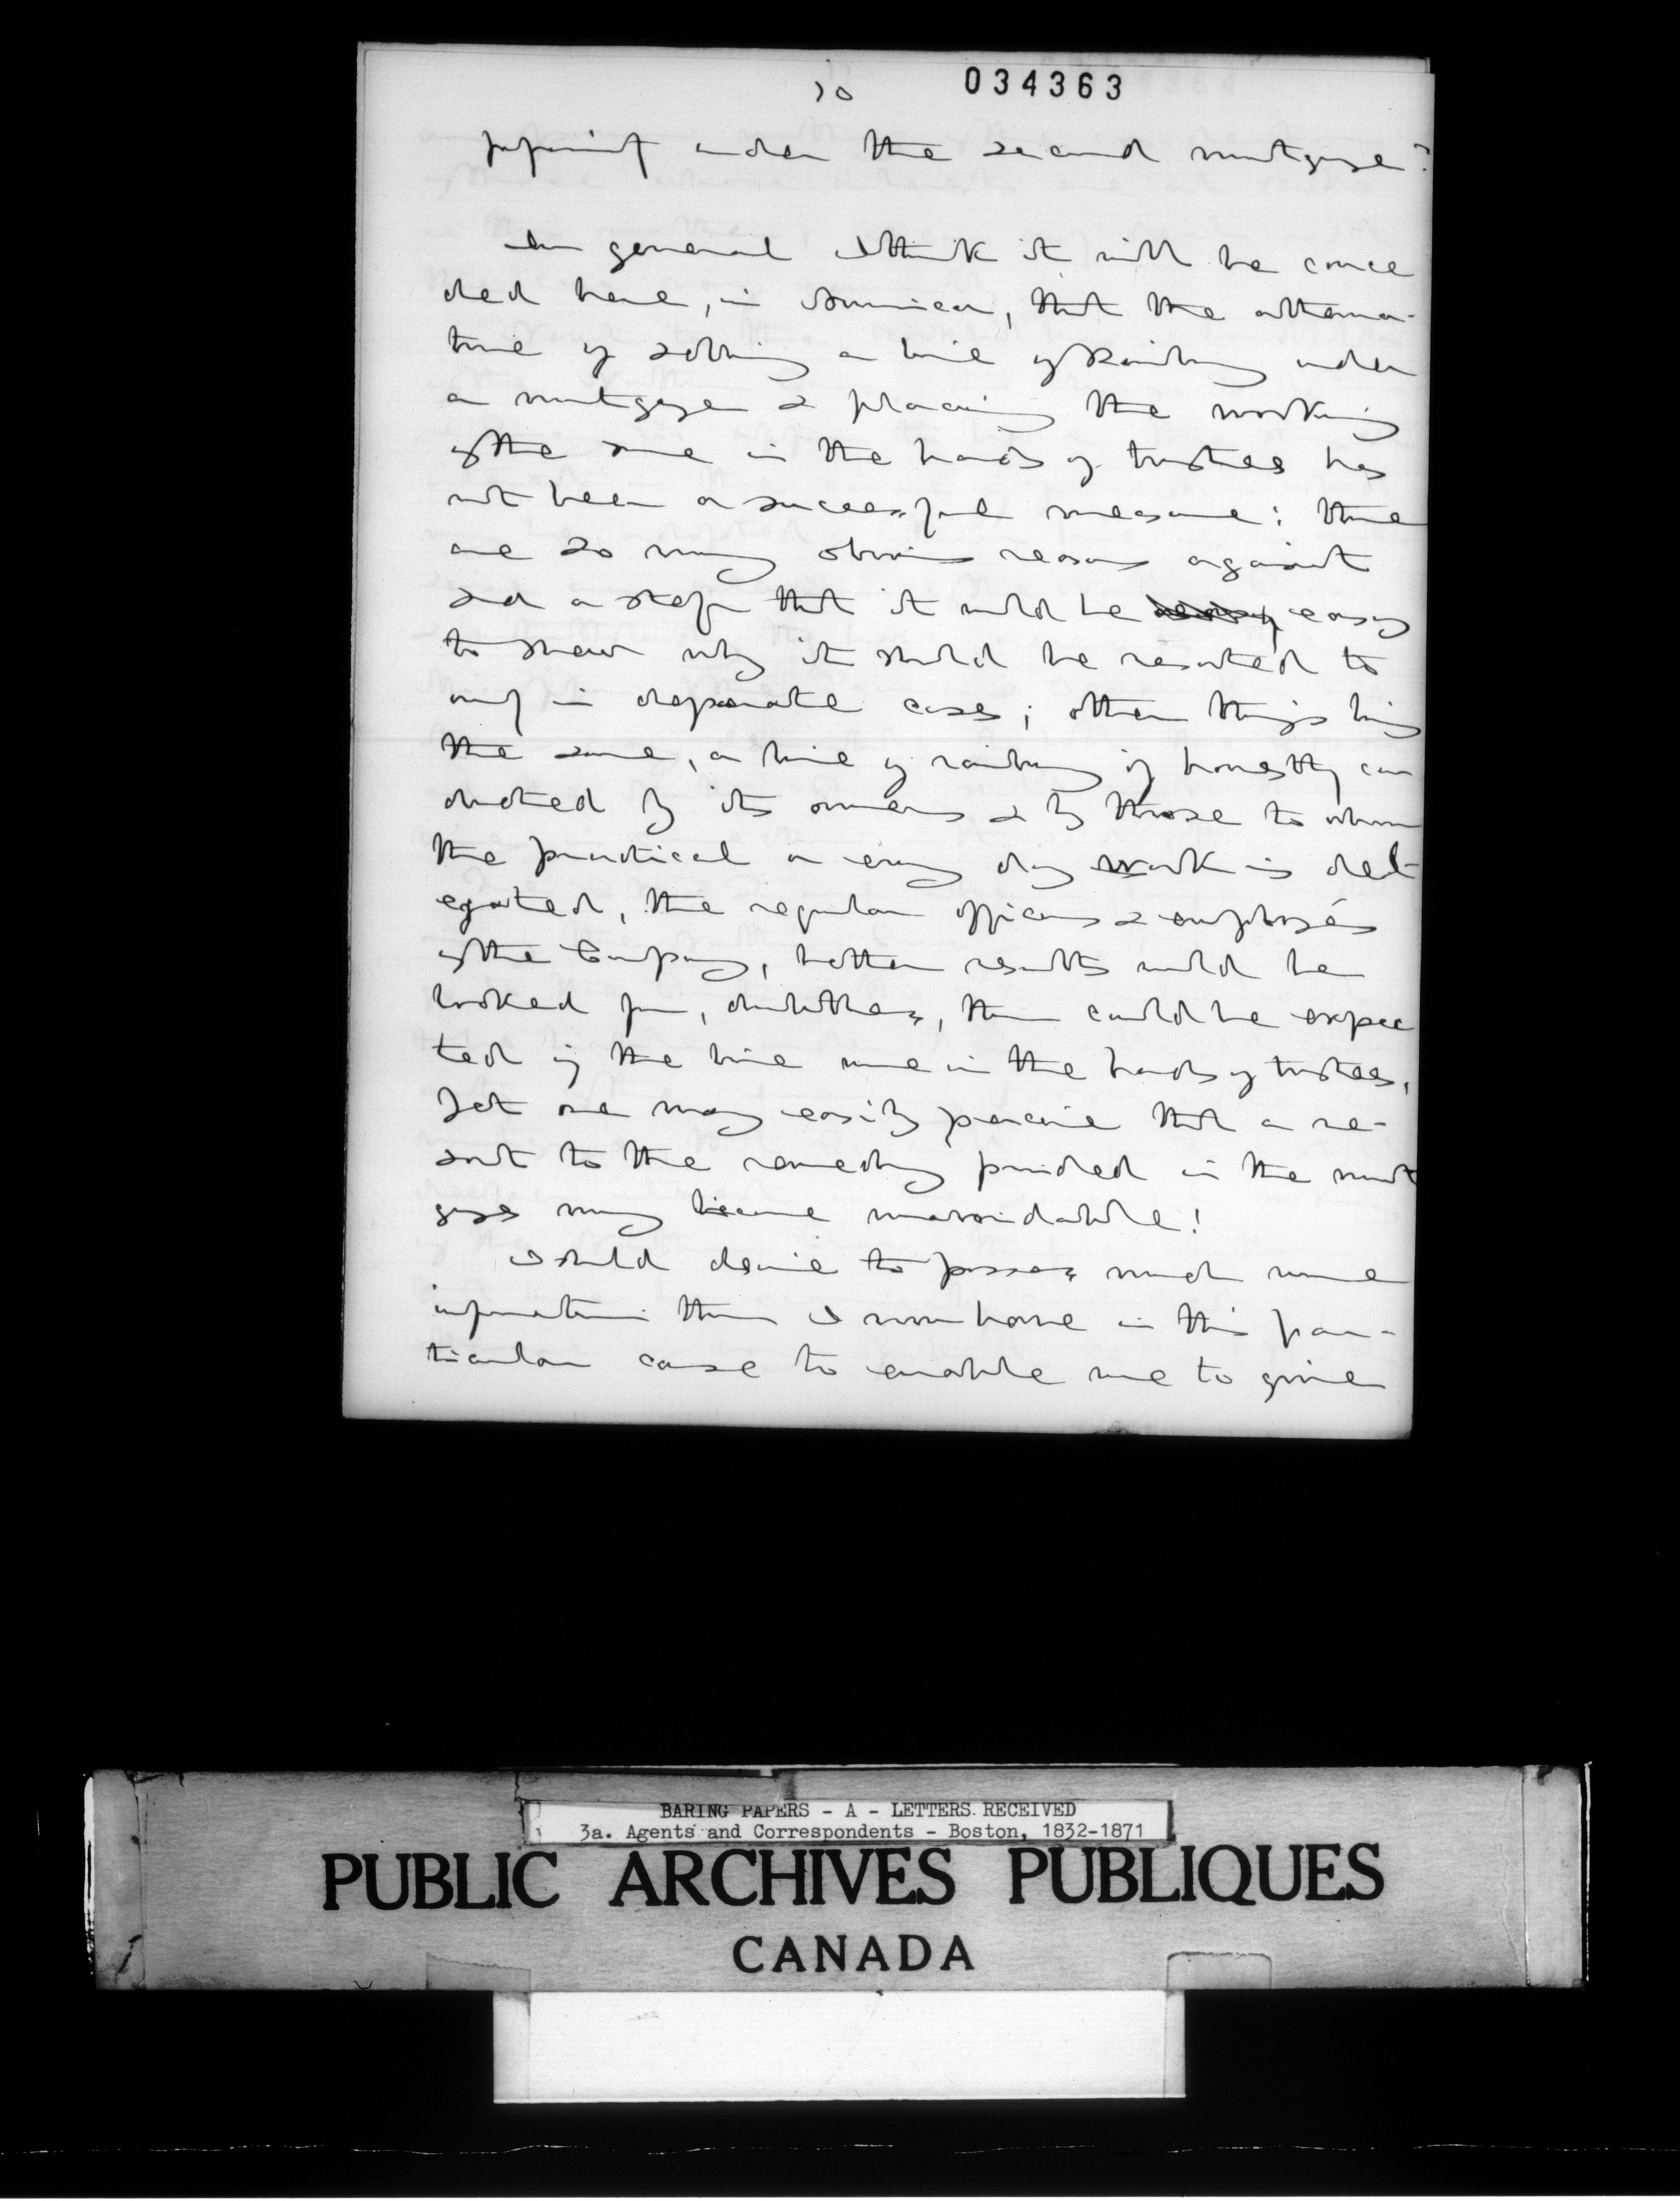 10 034363
under the second mortgage?
In general I think it will be conce
ded here, in America, that the alterna-
tive of selling a line of Railway under
a mortgage & placing the working
of the same in the hands of trustees has
not been a successful measure: there
are so many obvious reasons against
such a step that it would be easy
to shew why it should be resorted to
only in desperate cases; other things being
the same, a line of railway if honestly con
ducted by its owners & by those to whom
the practical or every day work is del-
egated, the regular officers & employés
of the Company, better results would be
looked for, doubtless, than could be expec
ted if the line were in the hands of trustees,
Yet one may easily perceive that a re-
sort to the remedy provided in the mort
gages may become unavoidable!
I should desire to possess much more
information than I now have in this par-
ticular case to enable me to give
BARING PAPERS - A - LETTERS RECEIVED
3a. Agents and Correspondents - Boston, 1832-1871
PUBLIC ARCHIVES PUBLIQUES
CANADA